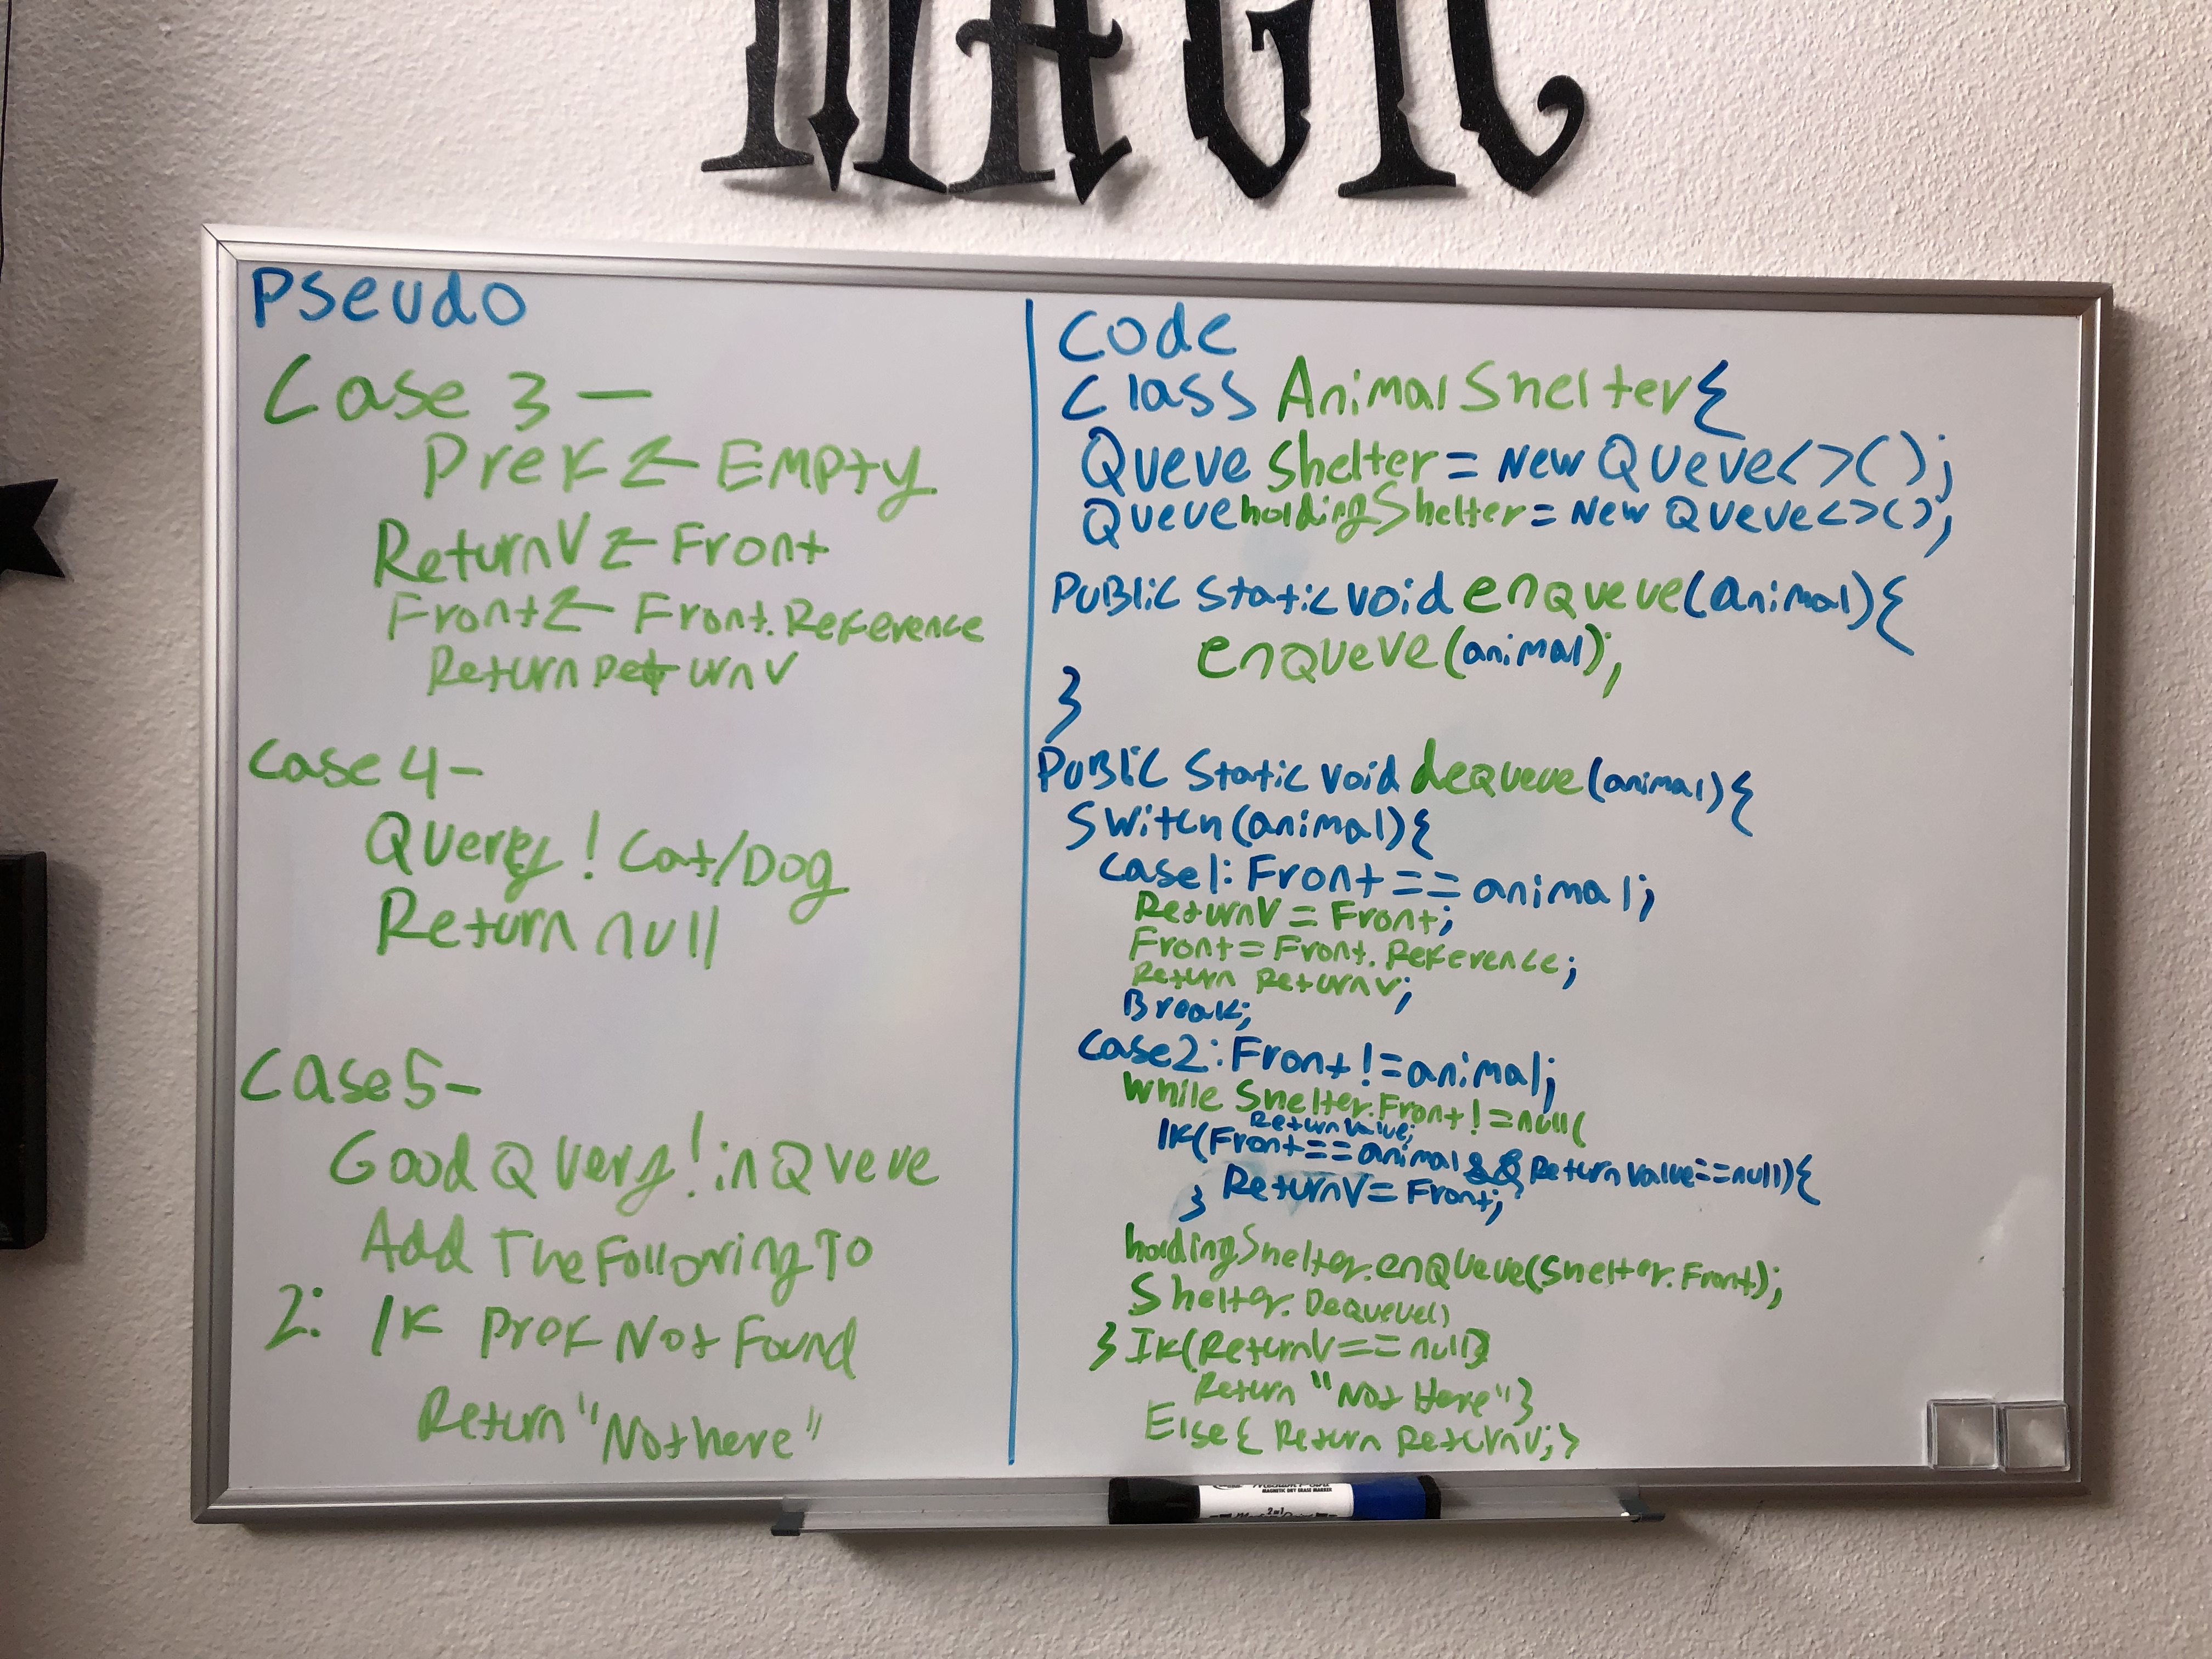 MAGIC
Pseudo
Case 3 -
Pref ← Empty
ReturnV ← Front
Front ← Front.Reference
Return ReturnV
Case 4 -
Query ! Cat/Dog
Return null
Case 5 -
Good Query ! in Queue
Add The Following To
2: If Pref Not Found
Return "Not here"
Code
Class AnimalShelter{
Queue Shelter = New Queue<>();
Queue holdingShelter = New Queue<>();
Public Static void enqueue(animal){
enqueue(animal);
}
Public Static void dequeue(animal){
Switch(animal){
Case1: Front == animal;
ReturnV = Front;
Front = Front.Reference;
Return ReturnV;
Break;
Case2: Front != animal;
While Shelter.Front != null(
Return Value;
If(Front == animal && Return Value == null){
} ReturnV = Front;
holdingShelter.enQueue(Shelter.Front);
Shelter.DeQueue()
} If(ReturnV == null}
Return "Not Here"}
Else{ Return ReturnV;}